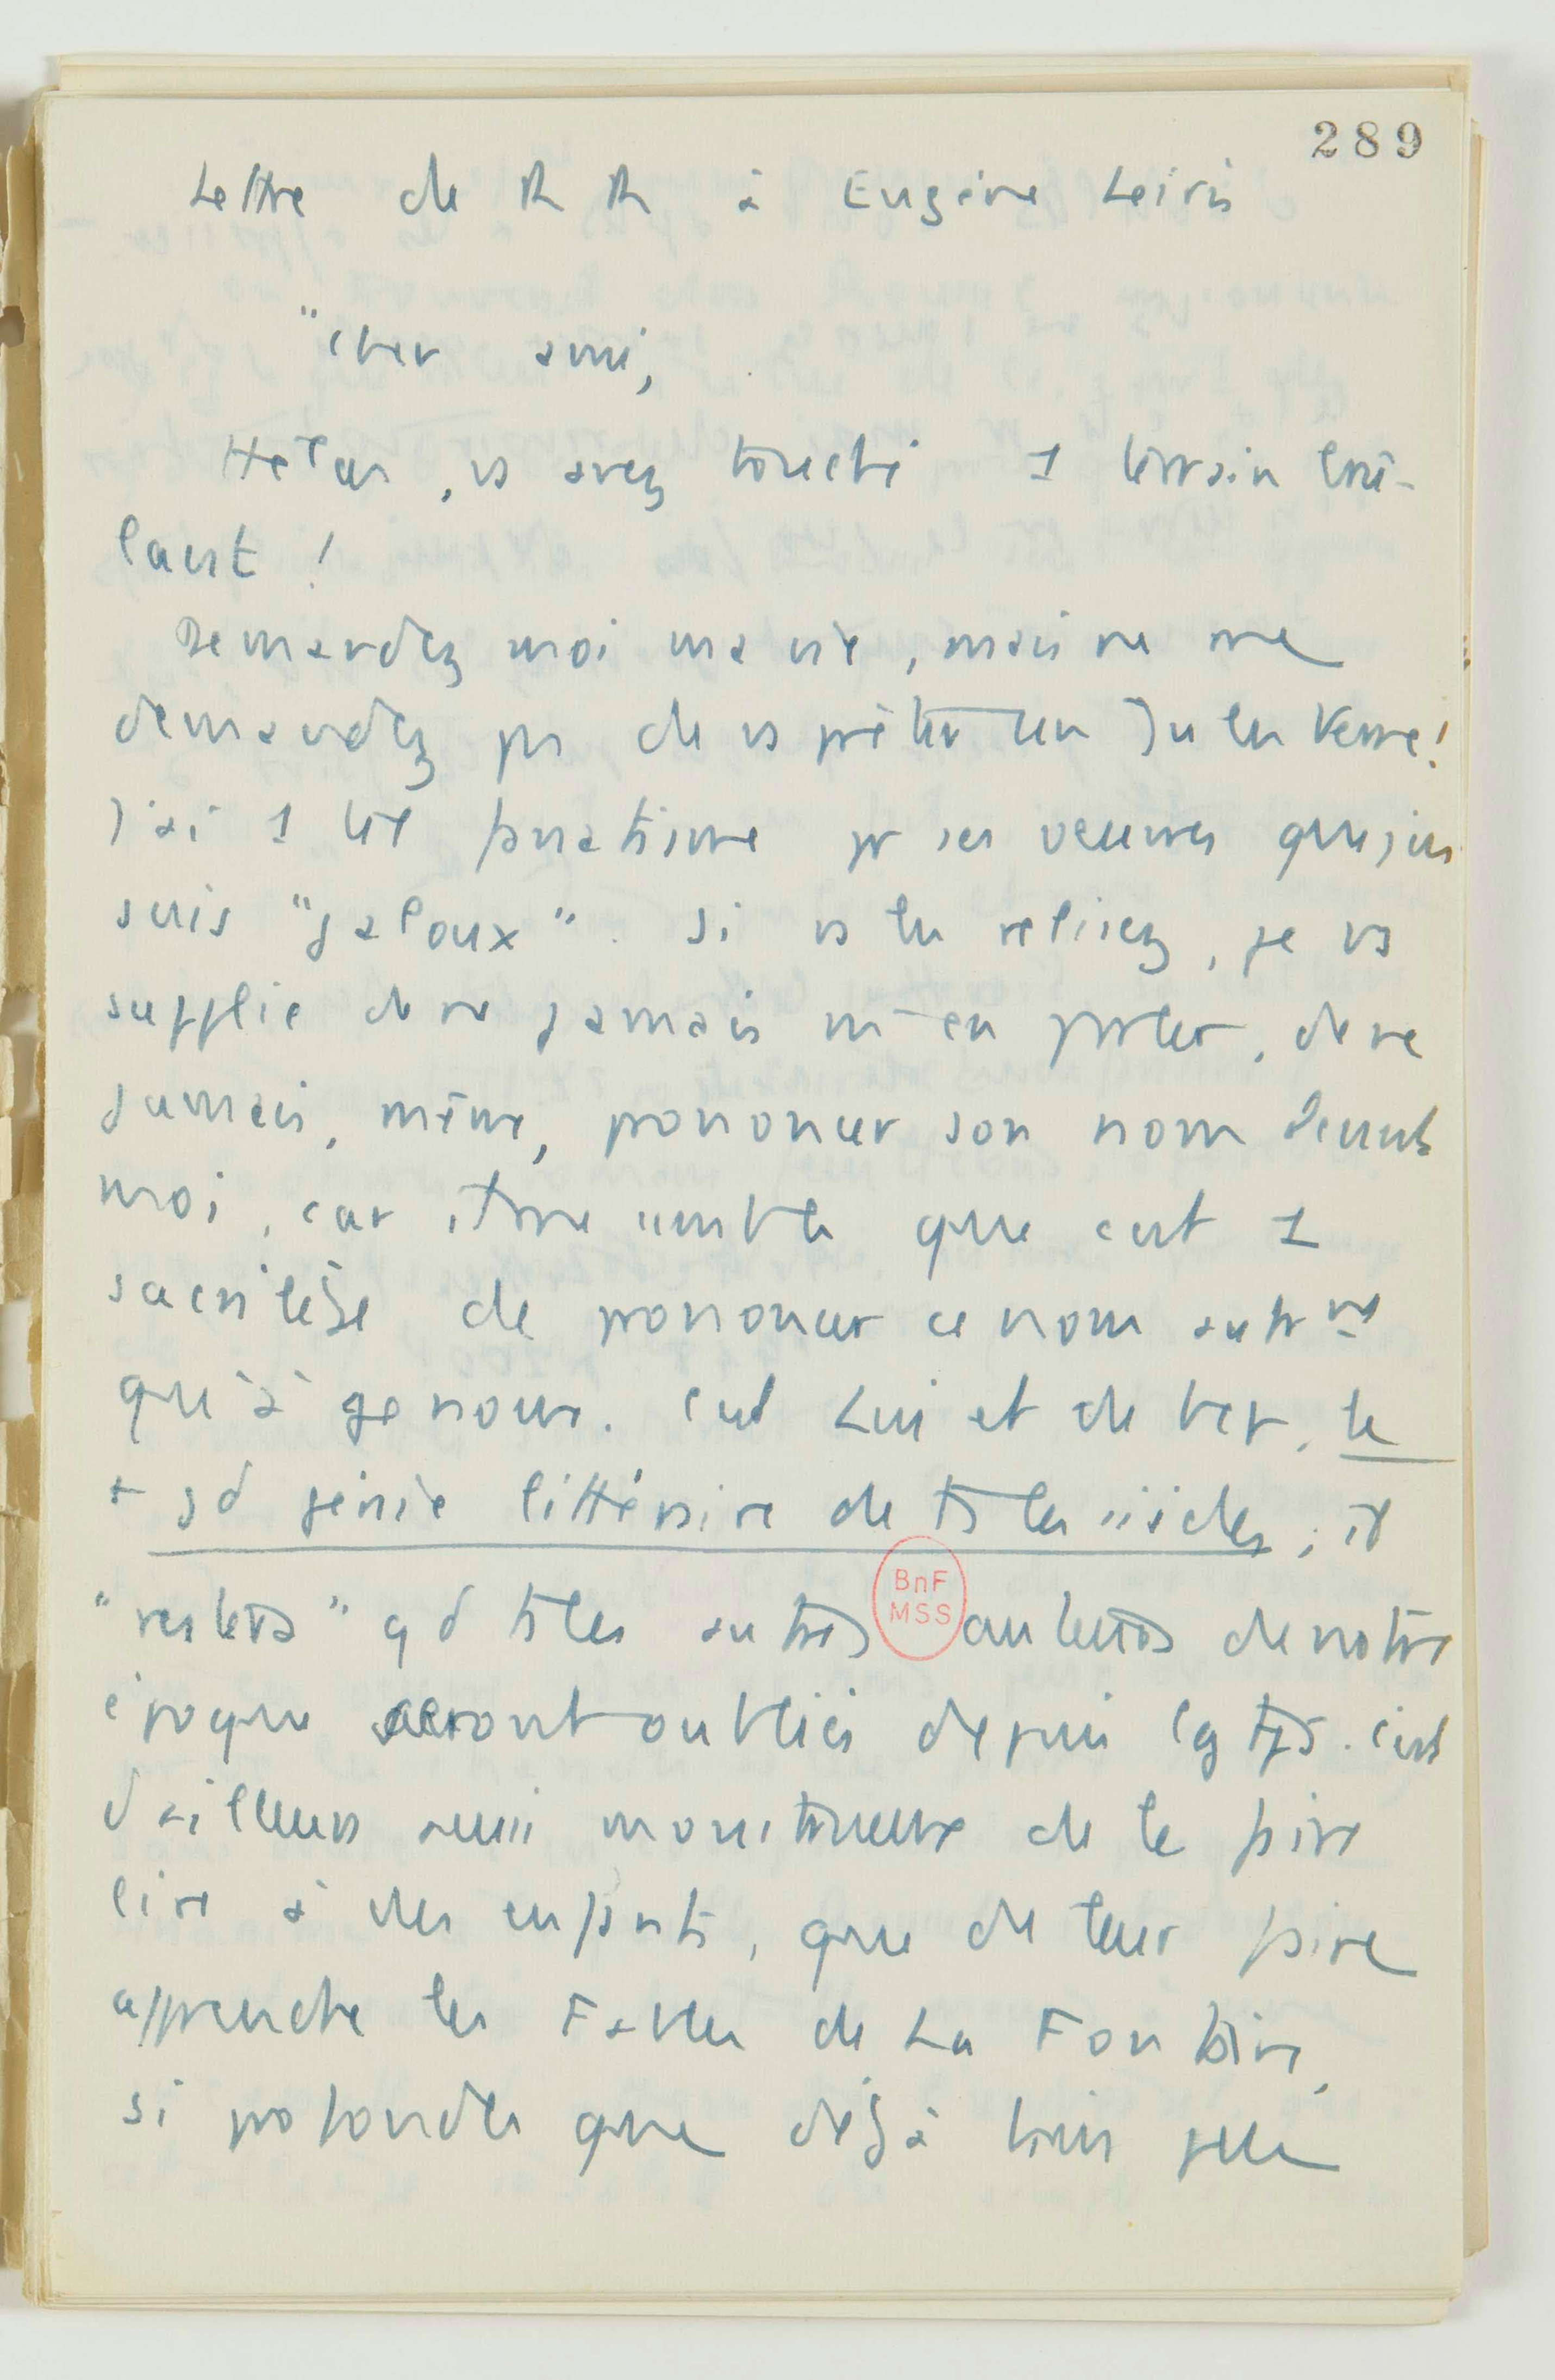 289
Lettre de R R à Eugène Leiris
"Cher ami,
Hélas, vs avez touché 1 terrain brû-
lant !
Demandez moi ma vie, mais ne me
demandez ps de vs prêter un Jules Verne !
J'ai 1 tel fanatisme pr ses œuvres que j'en
suis "jaloux". Si vs les relisez, je vs
supplie de ne jamais m'en parler, de ne
jamais, même, prononcer son nom devant
moi, car il me semble que c'est 1
sacrilège de prononcer ce nom autrnt
qu'à genoux. C'est Lui et de bcp, le
+ gd génie littéraire de ts les siècles ; il
"restera" qd ts les autres auteurs de notre
époque seront oubliés depuis lg tps. C'est
d'ailleurs aussi monstrueux de le faire
lire à des enfants, que de leur faire
apprendre les Fables de La Fontaine,
si profondes que déjà bien peu
BnF
MSS